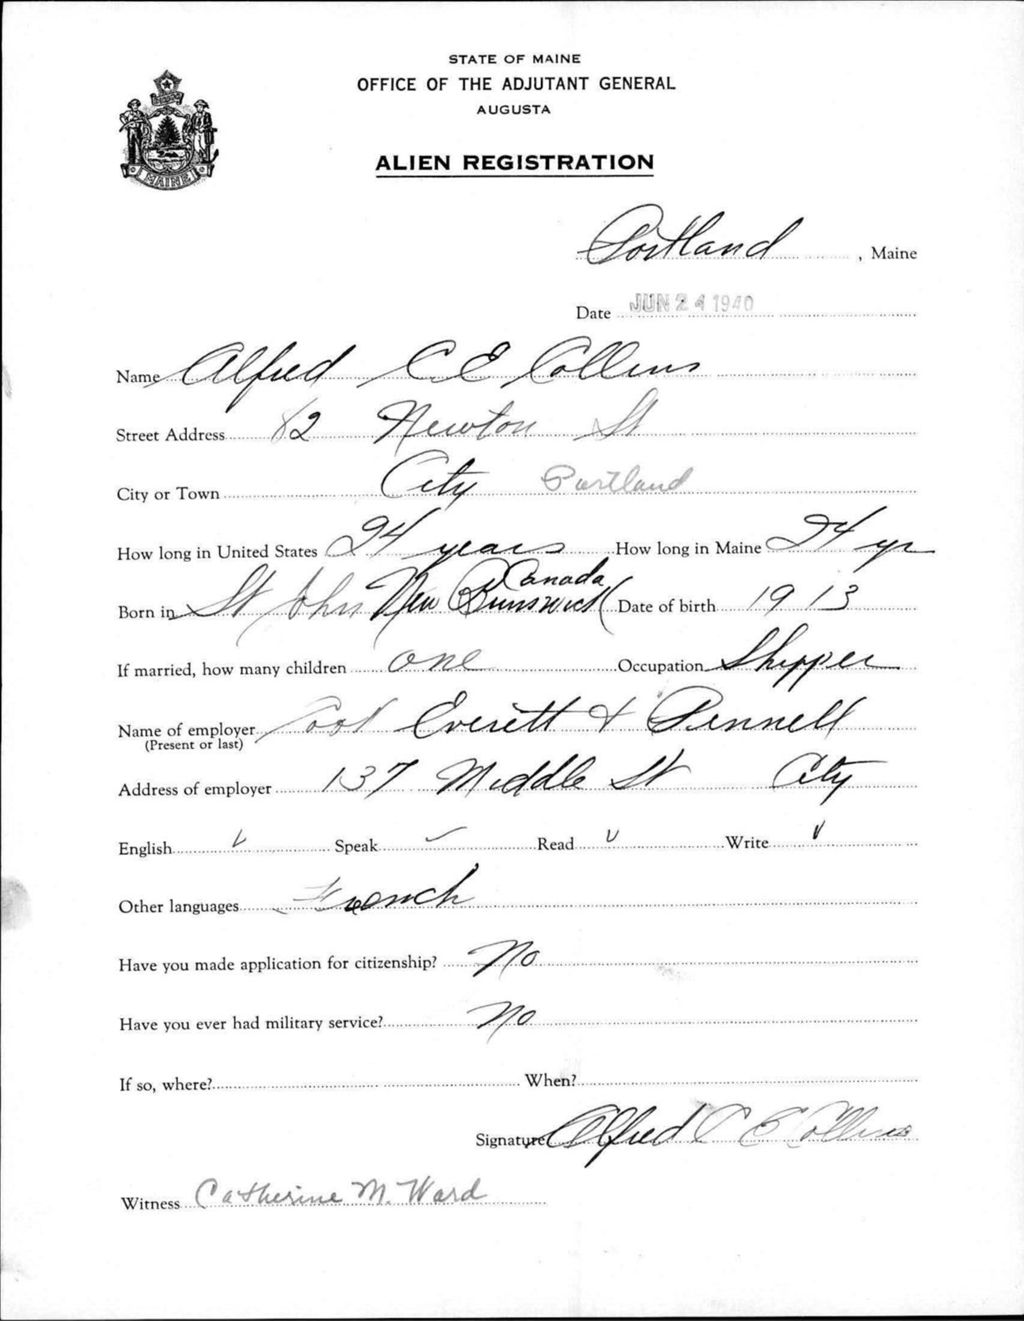 STATE OF MAINE
OFFICE OF THE ADJUTANT GENERAL
AUGUSTA
ALIEN REGISTRATION
MAINE
Portland, Maine
Date JUN 24 1940
Name Alfred C E Collins
Street Address 82 Newton St
City or Town City Portland
How long in United States 24 years How long in Maine 24 yr
Canada
Born in St John New Brunswick Date of birth 1913
If married, how many children one Occupation Shipper
Name of employer Cook Everett & Pennell
(Present or last)
Address of employer 137 Middle St City
English ✓ Speak ✓ Read ✓ Write ✓
Other languages French
Have you made application for citizenship? No
Have you ever had military service? No
If so, where? When?
Signature Alfred C E Collins
Witness Catherine M. Ward